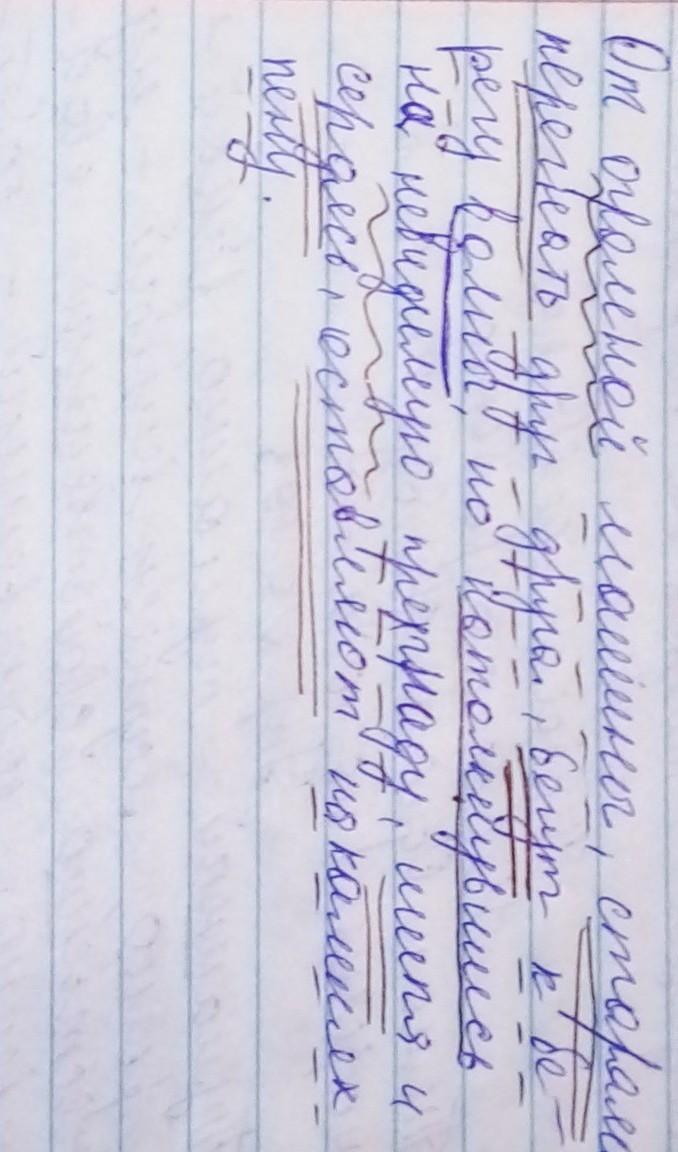 От огромной машины, старая
перегнать друг друга, бегут к бе-
регу волны, но натолкнувшись
на невидимую преграду, шипя и
сердясь, оставляют на камнях
пену.